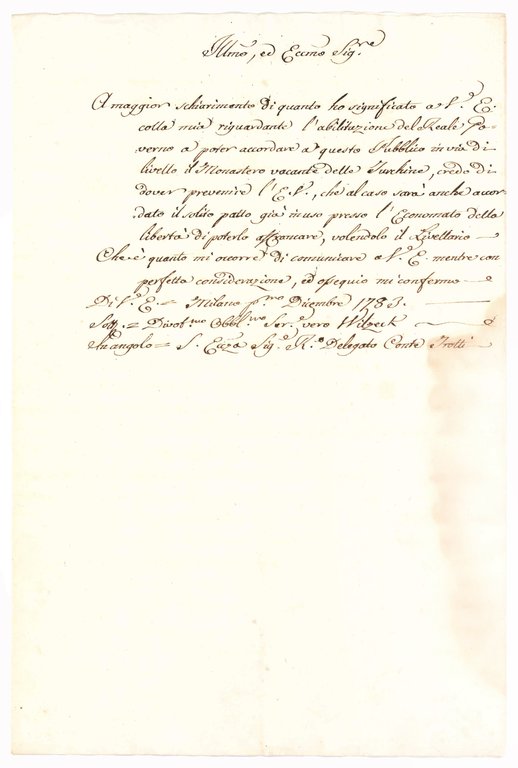 Illmo, ed Eccmo Sig.re
A maggior schiarimento di quanto ho significato a V.a E.
colla mia riguardante l'abilitazione del Reale Go-
verno a poter accordare a questo Pubblico in via di
livello il Monastero vacante delle Turchine, credo di
dover prevenire l'E.V., che al caso sarà anche accor-
dato il solito patto già in uso presso l'Economato della
libertà di poterlo affrancare, volendolo il Livellario
Che è quanto mi occorre di comunicare a V.a E. mentre con
perfetta considerazione, ed ossequio mi confermo
Di V.a E. = Milano p.mo Dicembre 1783.
Sott.o = Divot.mo Obbl.mo Ser.e vero Wilzeck
In angolo = S. Ecc.za Sig.e R.o Delegato Conte Trotti